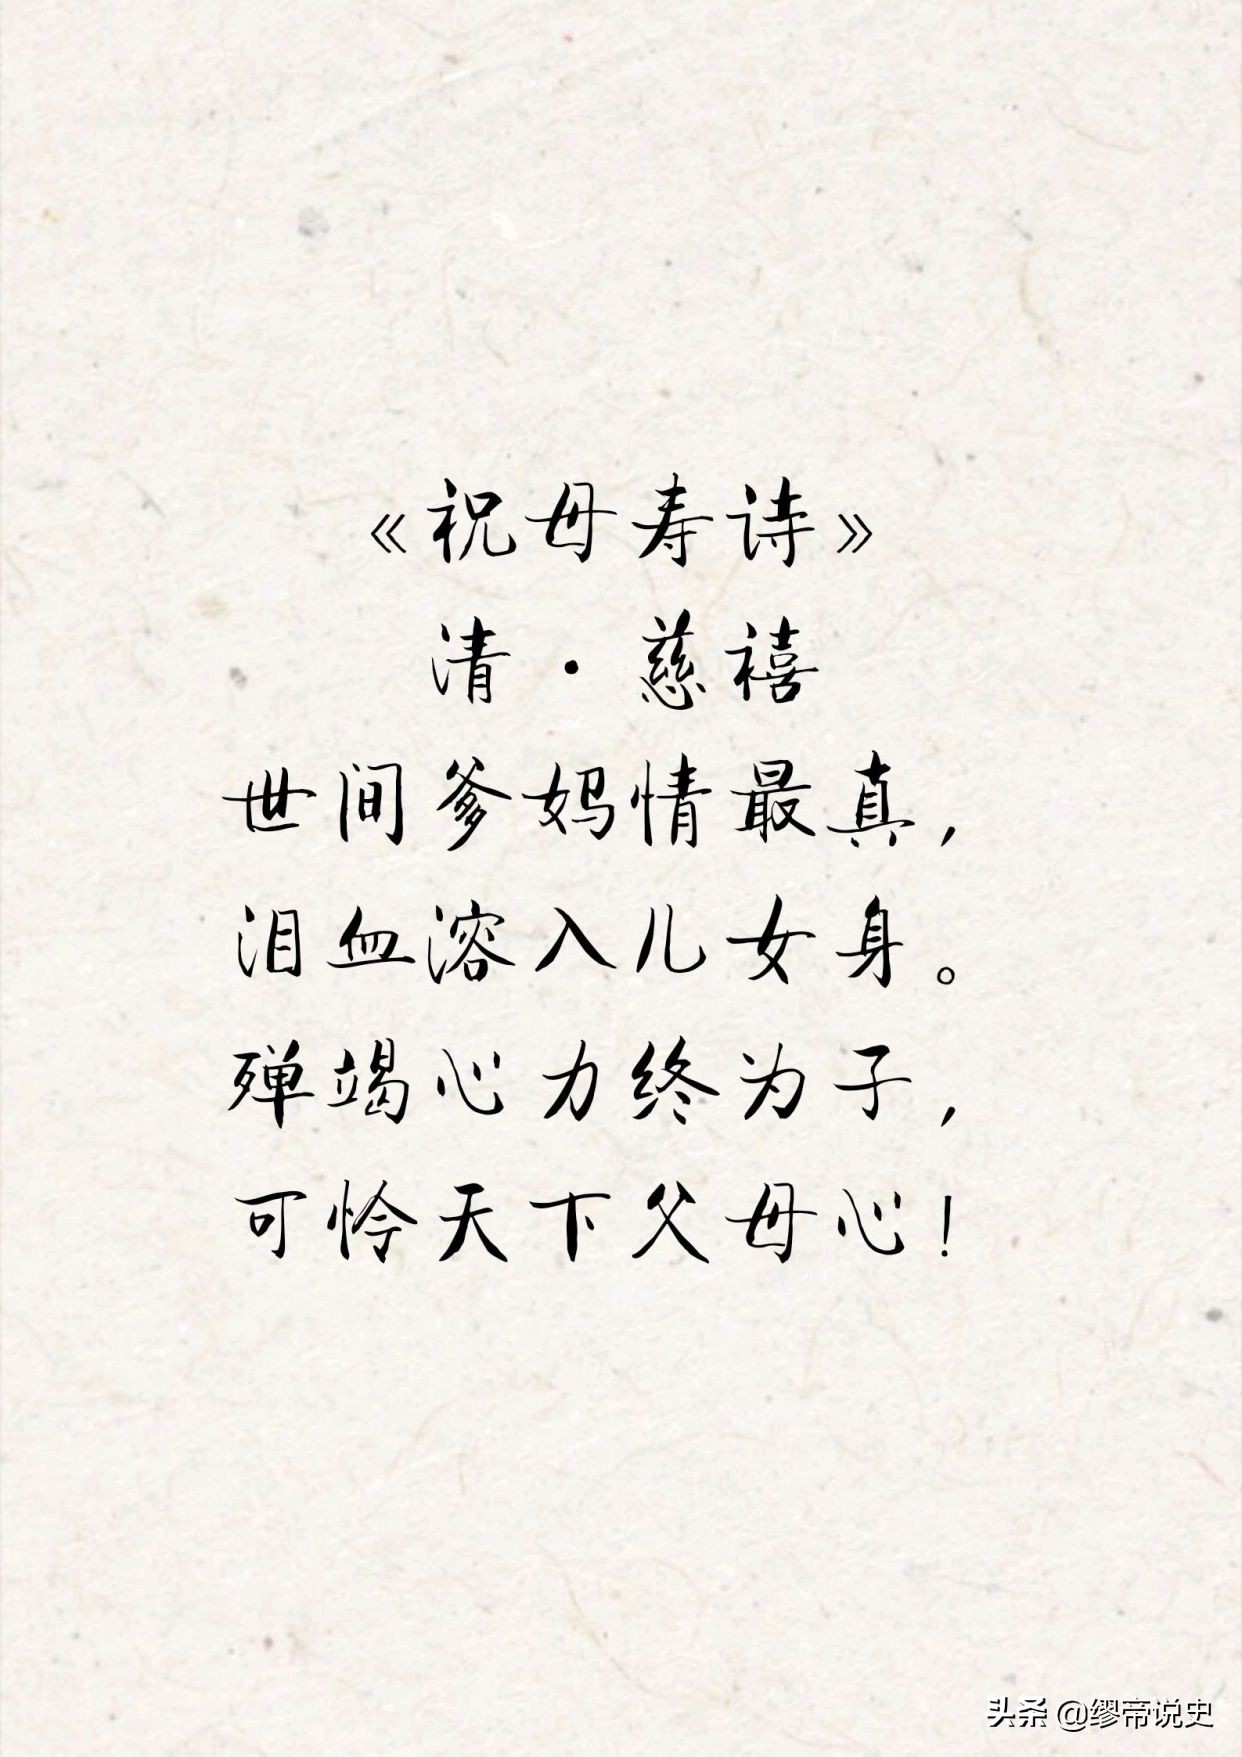 《祝母寿诗》
清·慈禧
世间爹妈情最真,
泪血溶入儿女身。
殚竭心力终为子,
可怜天下父母心!
头条 @缪帝说史